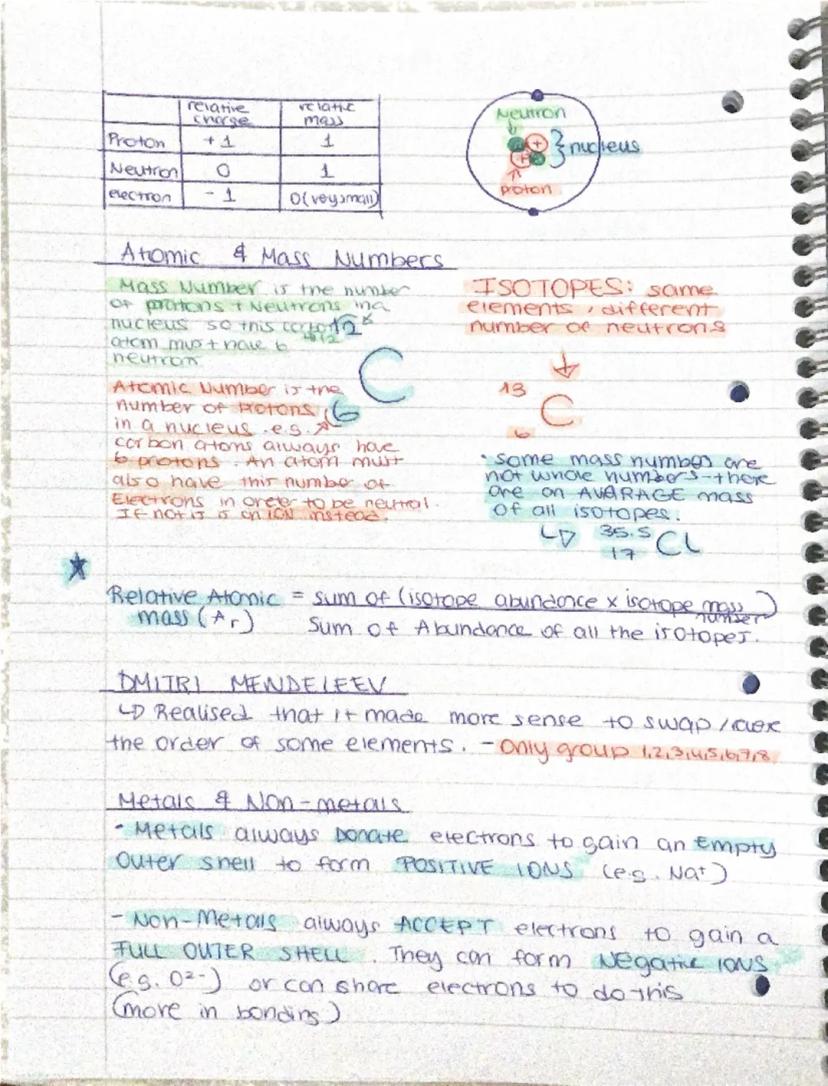 relative charge relative mass
Proton +1 1
Neutron 0 1
electron -1 0(very small)
Neutron
+
+
} nucleus
proton
Atomic & Mass Numbers
Mass Number is the number
of protons + Neutrons in a
nucleus so this carbon 12
atom must have 6
neutron
C
Atomic Number is the
number of protons 6
in a nucleus. e.g.
carbon atoms always have
6 protons. An atom must
also have this number of
Electrons in order to be neutral.
If not it is an ION instead.
ISOTOPES: same
elements, different
number of neutrons
13
C
6
• some mass number are
not whole numbers - these
are an AVERAGE mass
of all isotopes.
35.5
17 CL
Relative Atomic = sum of (isotope abundance x isotope mass
number)
mass (Ar) Sum of Abundance of all the isotopes.
DMITRI MENDELEEV
↳ Realised that it made more sense to swap /
the order of some elements. - Only group 1,2,3,4,5,6,7,8
Metals & Non-metals
- Metals always DONATE electrons to gain an Empty
Outer shell to form POSITIVE IONS (e.g. Na+)
- Non-Metals always ACCEPT electrons to gain a
FULL OUTER SHELL. They can form Negative IONS
(e.g. O2-) or can share electrons to do this
(more in bonding)